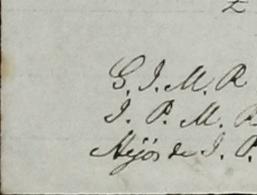 G. J. M. R
J. P. M. R
Hijos de J. P.